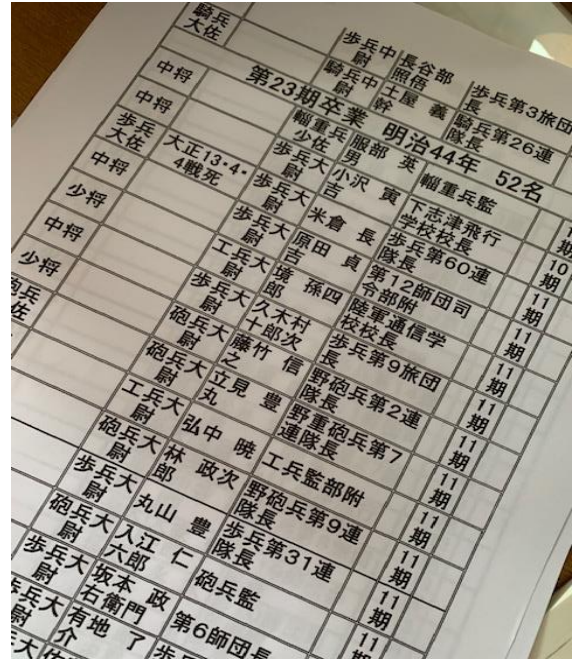 歩兵中尉 長谷部照悟 歩兵第3旅団長
騎兵大佐 騎兵中尉 土屋 義幹 騎兵第26連隊長
第23期卒業 明治44年 52名
中将 輜重兵少佐 服部 英男 輜重兵監 期
中将 歩兵大尉 小沢 寅吉 下志津飛行学校校長 10期
歩兵大佐 大正13・4・4戦死 歩兵大尉 米倉 長 歩兵第60連隊長 11期
中将 歩兵大尉 原田 貞吉 第12師団司令部附 11期
少将 工兵大尉 境 孫四郎 陸軍通信学校校長 11期
中将 歩兵大尉 久木村十郎次 歩兵第9旅団長 11期
少将 砲兵大尉 藤竹 信之 野砲兵第2連隊長 11期
砲兵大佐 砲兵大尉 立見 豊丸 野重砲兵第7連隊長 11期
工兵大尉 弘中 暁 工兵監部附 11期
砲兵大尉 林 政次郎 野砲兵第9連隊長 11期
歩兵大尉 丸山 豊 歩兵第31連隊長 11期
砲兵大尉 入江 仁六郎 砲兵監 11期
歩兵大尉 坂本 政右衛門 第6師団長 11
歩兵大尉 有地 了介 歩兵